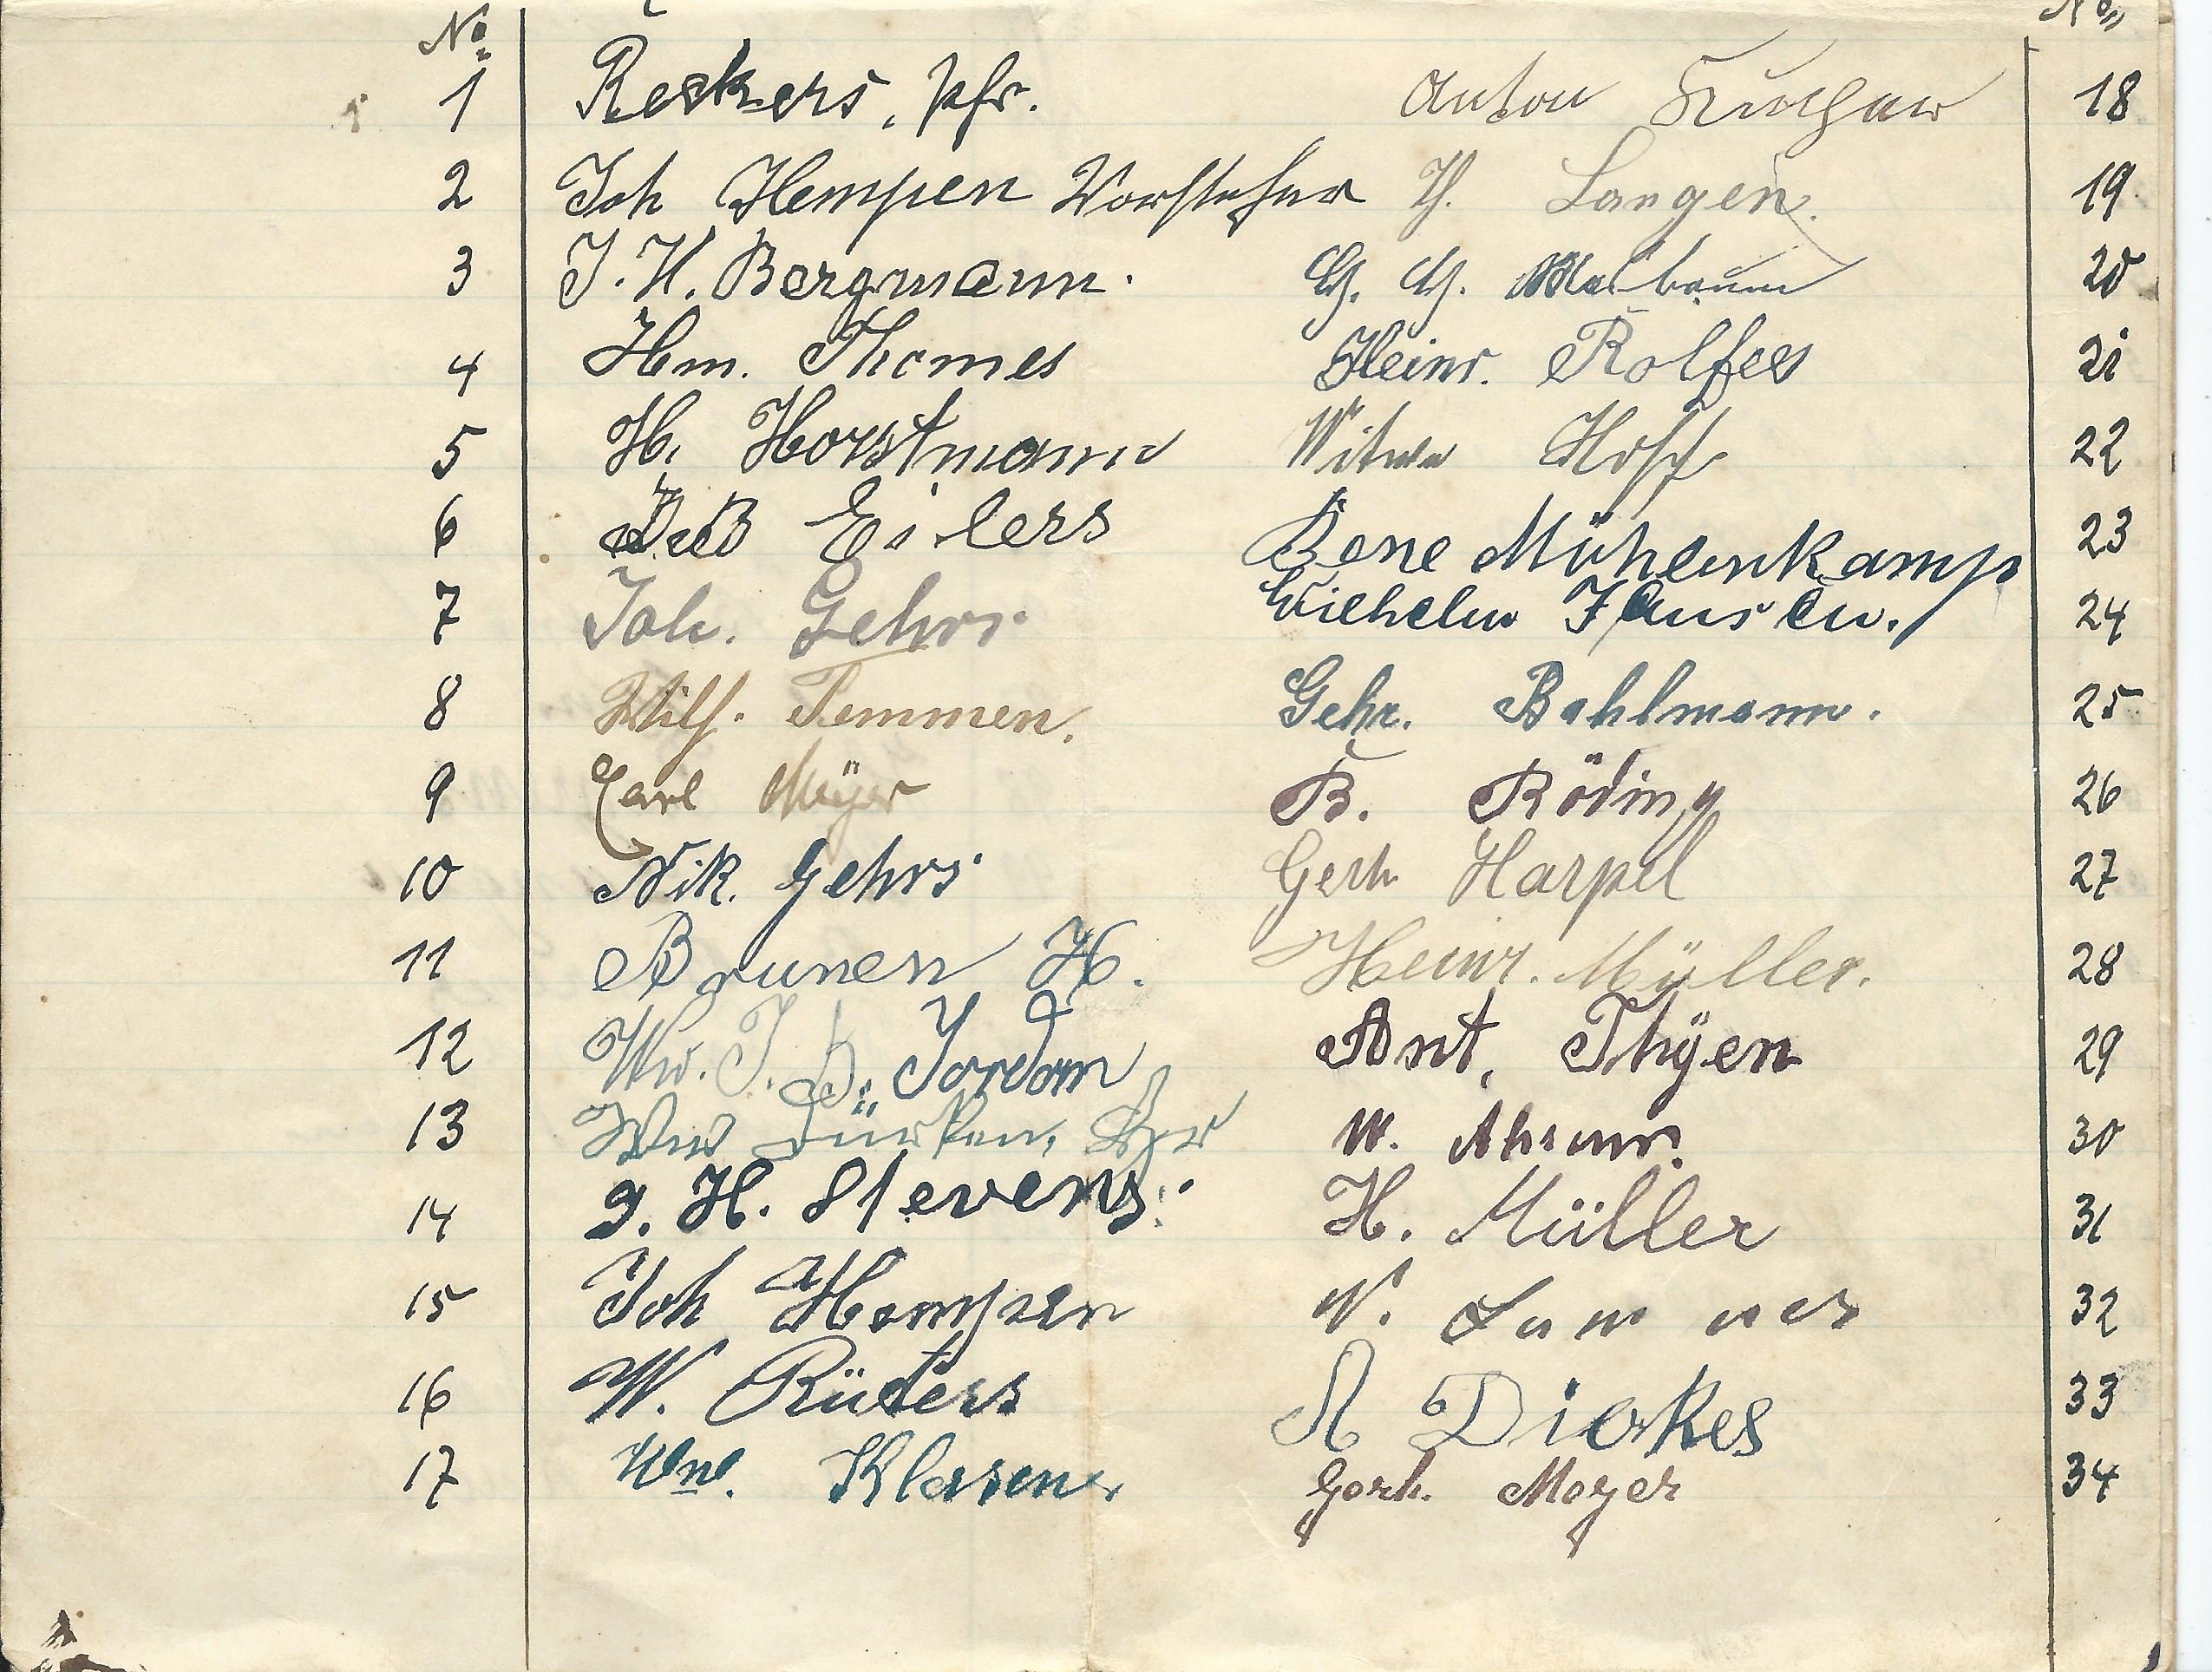 No. No.
1 Reskers, Pfr. Anton 18
2 Joh Hempen Vorsteher H. Langen. 19
3 J. H. Bergmann. G. H. Malbaum 20
4 Hm. Thomes Heinr. Rolfes 21
5 H. Horstmann Witwe Hoff 22
6 Eilers Bene Mühlenkamp 23
7 Joh. Gehrs Wilhelm Jansen. 24
8 Wilh. Temmen. Gehr. Bahlmann. 25
9 Carl Meÿer B. Röding 26
10 Nik. Gehrs Gerh Harpel 27
11 Brunen H. Heinr. Müller. 28
12 Ww. J. B. Jordan Ant. Thÿen 29
13 Ww Dürken, W. Ahrens. 30
14 J. H. Stevens. H. Müller 31
15 Joh Hempen W. 32
16 W. Rüters A Dierkes 33
17 Ww. Klasen Gerh. Meyer 34